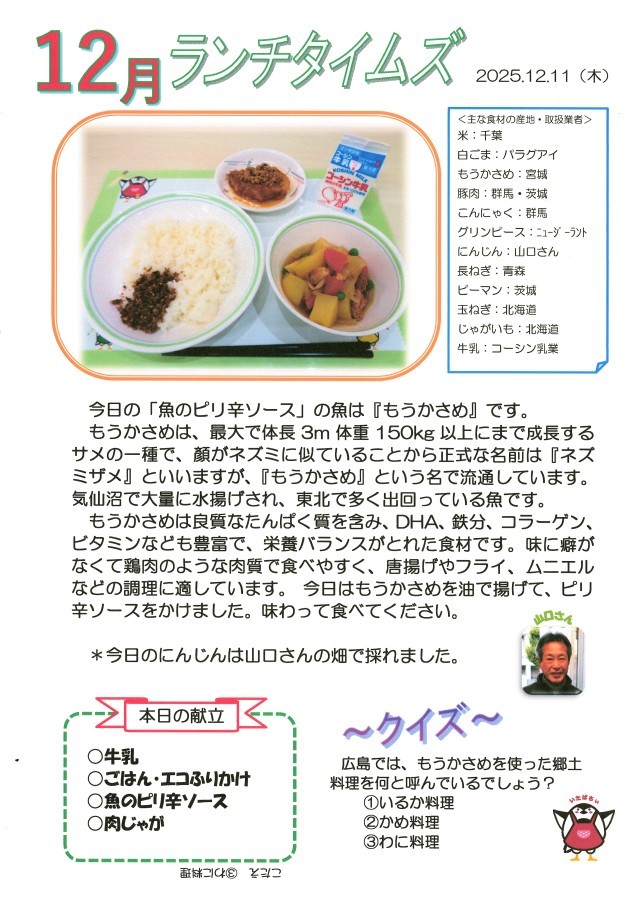 12月ランチタイムズ
2025.12.11（木）
＜主な食材の産地・取扱業者＞
米：千葉
白ごま：パラグアイ
もうかさめ：宮城
豚肉：群馬・茨城
こんにゃく：群馬
グリンピース：ﾆｭｰｼﾞｰﾗﾝﾄﾞ
にんじん：山口さん
長ねぎ：青森
ピーマン：茨城
玉ねぎ：北海道
じゃがいも：北海道
牛乳：コーシン乳業
コーシン牛乳
今日の「魚のピリ辛ソース」の魚は『もうかさめ』です。
もうかさめは、最大で体長 3m 体重 150kg 以上にまで成長する
サメの一種で、顔がネズミに似ていることから正式な名前は『ネズ
ミザメ』といいますが、『もうかさめ』という名で流通しています。
気仙沼で大量に水揚げされ、東北で多く出回っている魚です。
もうかさめは良質なたんぱく質を含み、DHA、鉄分、コラーゲン、
ビタミンなども豊富で、栄養バランスがとれた食材です。味に癖が
なくて鶏肉のような肉質で食べやすく、唐揚げやフライ、ムニエル
などの調理に適しています。 今日はもうかさめを油で揚げて、ピリ
辛ソースをかけました。味わって食べてください。
山口さん
＊今日のにんじんは山口さんの畑で採れました。
本日の献立
○牛乳
○ごはん・エコふりかけ
○魚のピリ辛ソース
○肉じゃが
こたえ ③わに料理
～クイズ～
広島では、もうかさめを使った郷土
料理を何と呼んでいるでしょう？
①いるか料理
②かめ料理
③わに料理
いたばちぃ